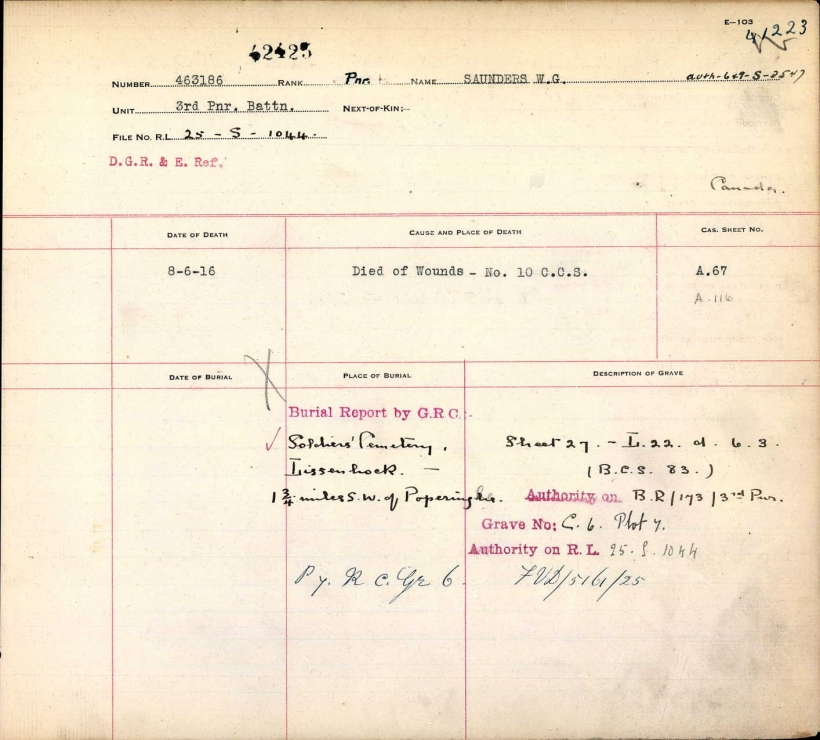 E-103
42425
41223
NUMBER 463186 RANK Pnr. NAME SAUNDERS W.G. auth-649-S-2547
UNIT 3rd Pnr. Battn. NEXT-OF-KIN:-
FILE NO. R.L. 25 - S - 1044.
D.G.R. & E. Ref.
Canada.
DATE OF DEATH CAUSE AND PLACE OF DEATH CAS. SHEET NO.
8-6-16 Died of Wounds - No. 10 C.C.S. A.67
A.116
DATE OF BURIAL PLACE OF BURIAL DESCRIPTION OF GRAVE
Burial Report by G.R.C:-
Soldiers' Cemetery, Sheet 27. - L.22. d. 6.3.
Lissenhoek. - (B.C.S. 83.)
1 3/4 miles S.W. of Poperinghe. Authority on B.R/173/3rd Pnr.
Grave No: C. 6. Plot 7.
Authority on R.L. 25. S. 1044
P 7. R C. Gr 6.